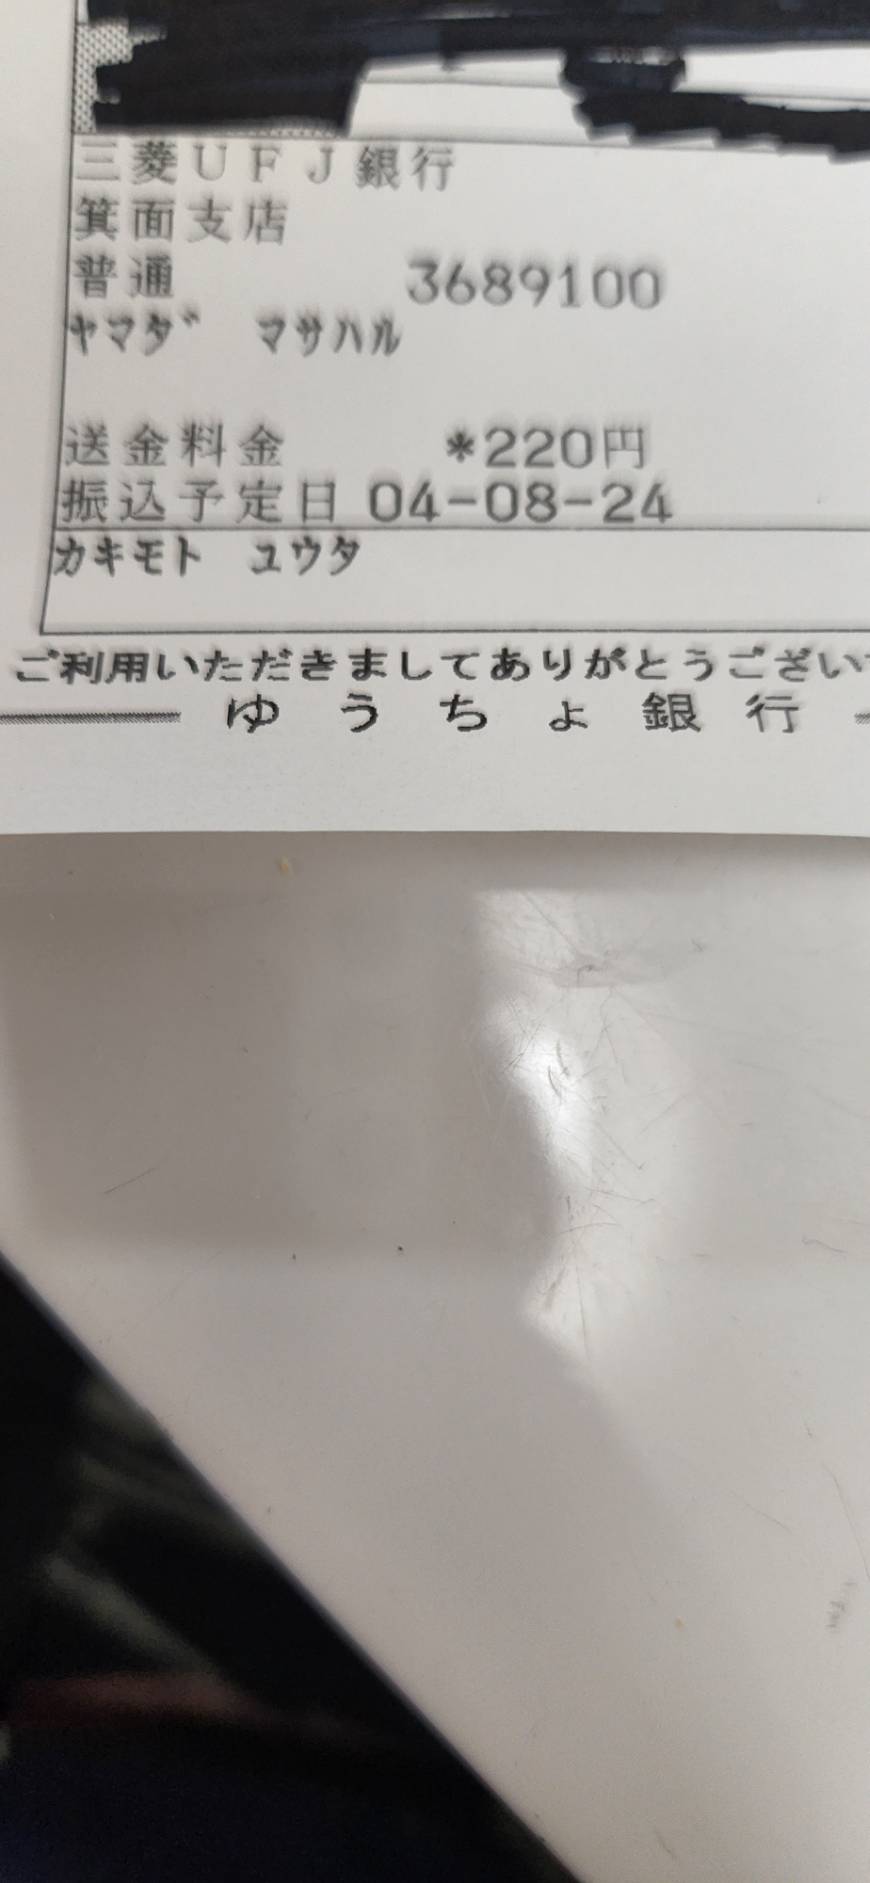 三菱ＵＦＪ銀行
箕面支店
普通 3689100
ﾔﾏﾀﾞ ﾏｻﾊﾙ
送金料金 *220円
振込予定日 04-08-24
カキモト ユウタ
ご利用いただきましてありがとうござい
ゆうちょ銀行